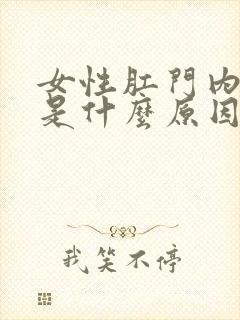 女性肛門內
是什麼原因
我笑不停